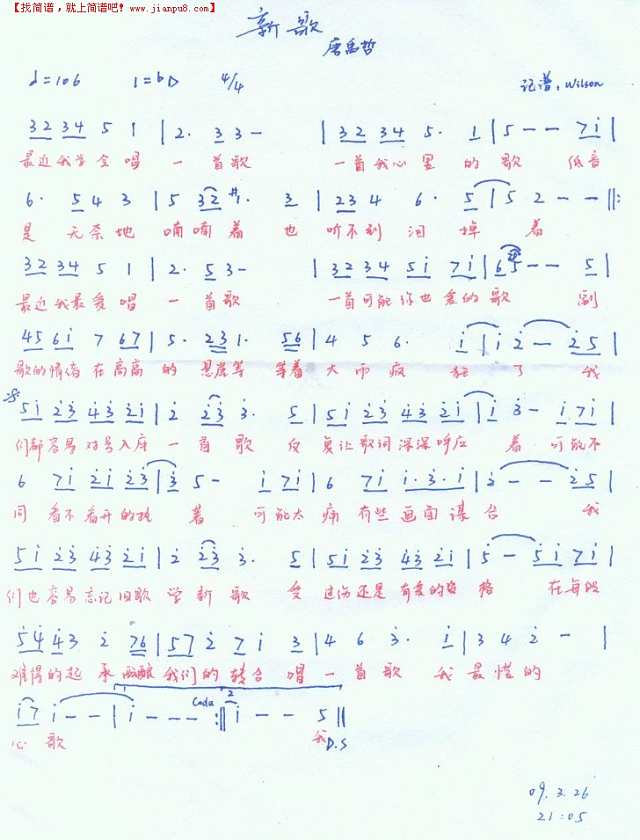 【找简谱，就上简谱吧! www.jianpu8.com】
新歌
唐禹哲
♩=106 1=♭D 4/4 记谱，Wilson
3 2 3 4 5 1 | 2· 3 3 - | 3 2 3 4 5· 1 | 5 - - 7 i |
最近我学会唱 一 首歌 一首我心里 的 歌 低音
6· 5 4 3 | 5 3 2 #1· 3 | 2 3 4 6· 5 | 5 2 - - ‖:
是 无奈地 喃喃着 也 听不到 泪 掉 着
3 2 3 4 5 1 | 2· 5 3 - | 3 2 3 4 5 i 7 i | 6 5 - - 5 |
最近我最爱唱 一 首歌 一首可能你也爱的歌 副
4 5 6 i 7 6 7 | 5· 2 3 1· 5 6 | 4 5 6· i | i 2 - 2 5 |
歌的情绪在高高 的 悬崖等 等着 大雨疯 狂 了 我
5 i 2 3 4 3 2 i | 2 2 3 3· 5 | 5 i 2 3 4 3 2 i | i 3 - i 7 i |
们都容易对号入座 一 首 歌 反 复让歌词深深呼应 着 可能不
6 7 i 2 i 2 3 | 3 5 - i 7 i | 6 7 i i·3·i | 2 - - 2 5 |
同 看不看开的 着 可能太 痛 有些画面谋合 我
5 i 2 3 4 3 2 i | 2 2 3 3· 5 | 5 i 2 3 4 3 2 i | 5 - 5 i 7 i |
们也容易忘记旧歌 学 新 歌 受 过伤还是 有爱的资 格 在每段
5 4 4 3 2 7 6 | 5 7 2 7 i 3 | 4 6 3· i | 3 4 2 - |
难得的起 承 酝酿 我们的 转合 唱 一 首 歌 我 最懂的
i 7 i - - | i - - - :‖ i - - 5 ‖
Coda 2
心 歌 我 D.S
09.3.26
21:05